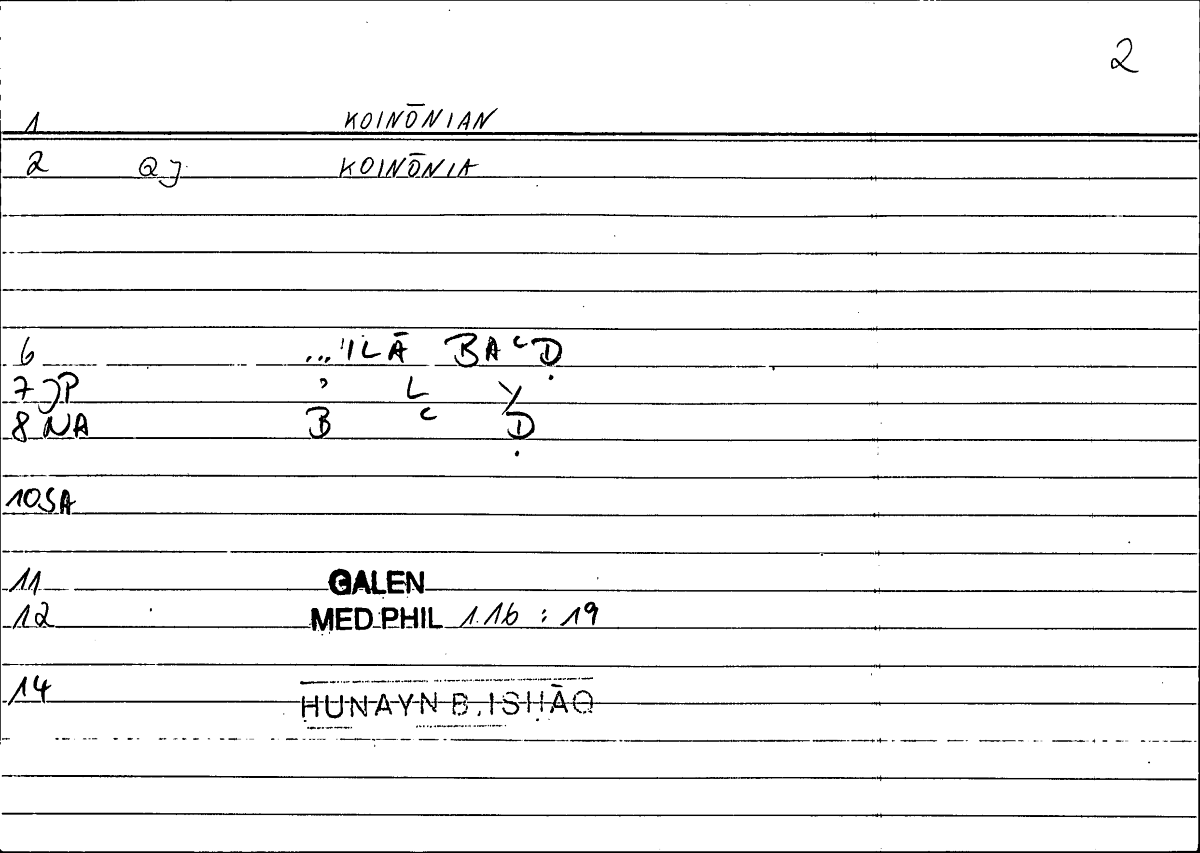 2
1 KOINŌNIAN
2 QJ KOINŌNIA
6 ...'ILĀ BAᶜḌ
7 JP ʾ L Y
8 NA B ᶜ Ḍ
10 SA
11 GALEN
12 MED PHIL 1.16 : 19
14 ḤUNAYN B. ISḤĀQ